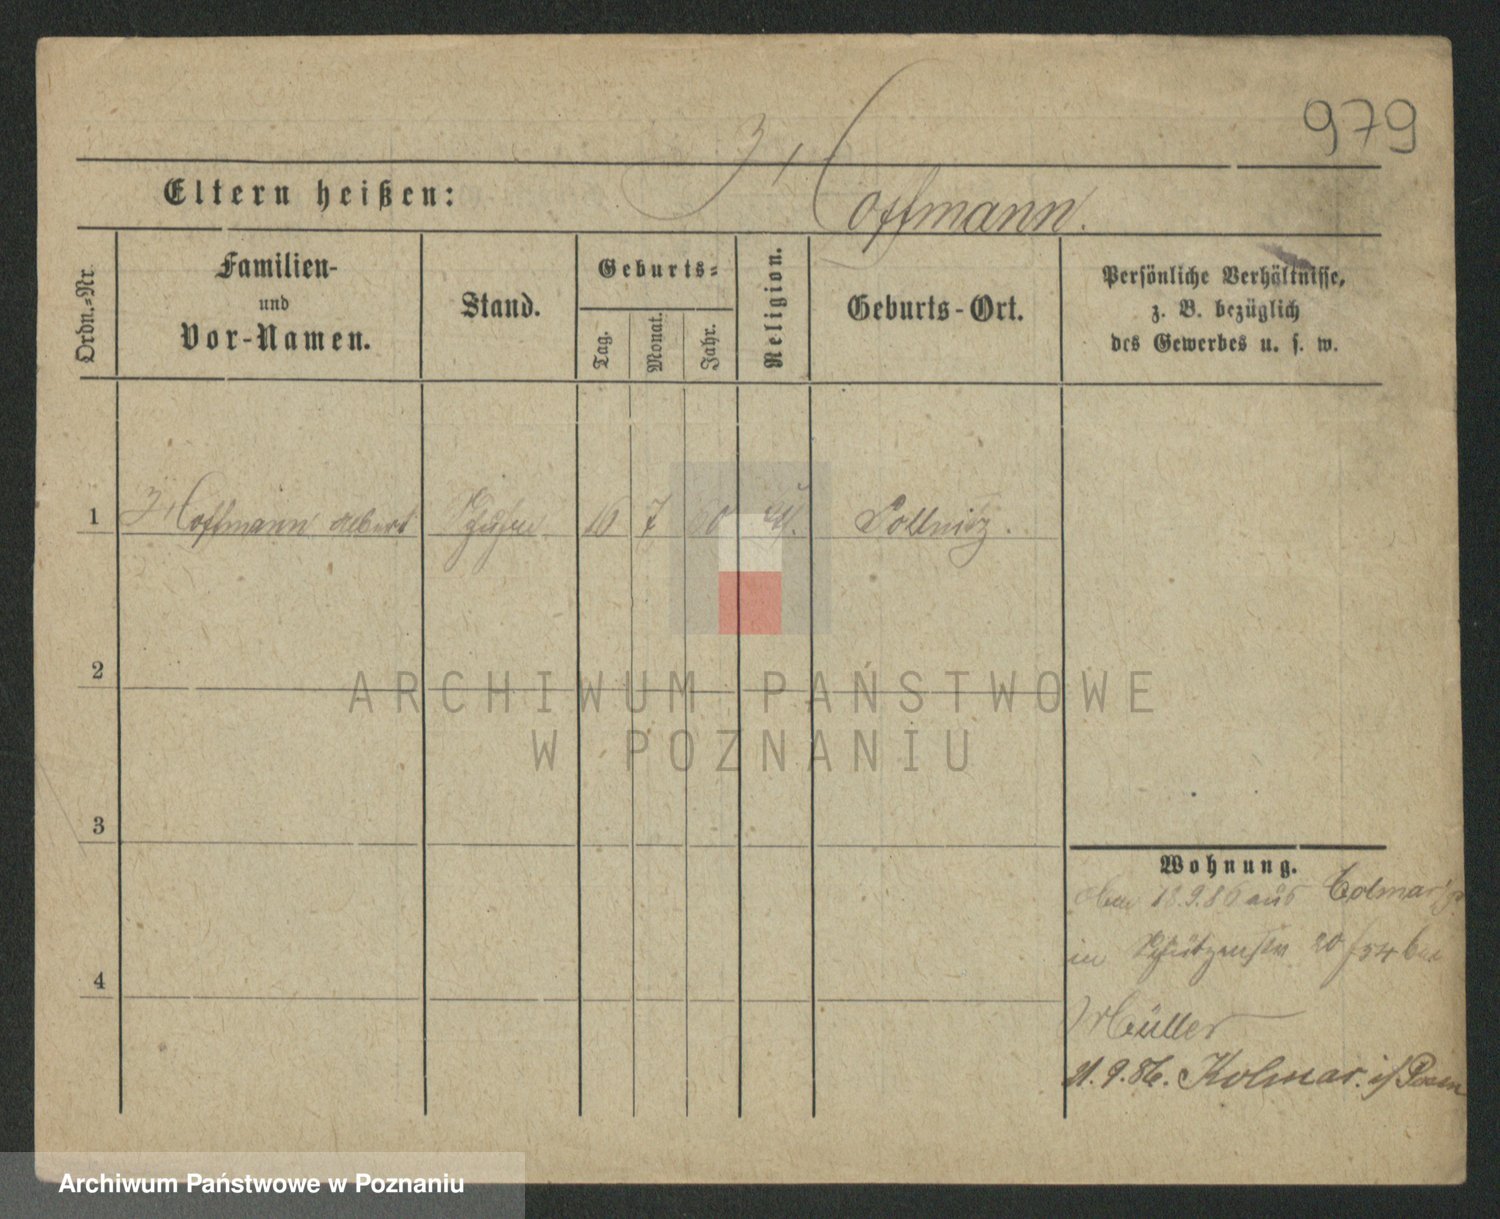 979
Eltern heißen:
Hoffmann.
Ordn.-Nr.
Familien-
und
Vor-Namen.
Stand.
Geburts-
Tag.
Monat.
Jahr.
Religion.
Geburts-Ort.
Persönliche Verhältnisse,
z. B. bezüglich
des Gewerbes u. s. w.
1 Hoffmann Albert 16 7 60 ev. Sollnitz.
2
ARCHIWUM PAŃSTWOWE
W POZNANIU
3
4
Wohnung.
18.9.86 aus Colmar
in Schützenstr 20 bei
Müller
21.9.86. Kolmar i/Posen
Archiwum Państwowe w Poznaniu